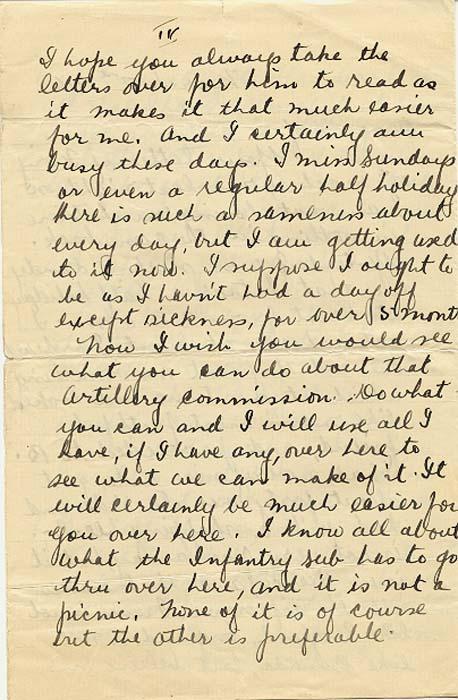 IV
I hope you always take the
letters over for him to read as
it makes it that much easier
for me. And I certainly am
busy these days. I miss Sundays
or even a regular half holiday
there is such a sameness about
every day, but I am getting used
to it now. I suppose I ought to
be as I havn't had a day off
except sickness, for over 5 month
Now I wish you would see
what you can do about that
Artillery commission. Do what
you can and I will use all I
have, if I have any, over here to
see what we can make of it. It
will certainly be much easier for
you over here. I know all about
what the Infantry sub has to go
thru over here, and it is not a
picnic. None of it is of course
but the other is preferable.